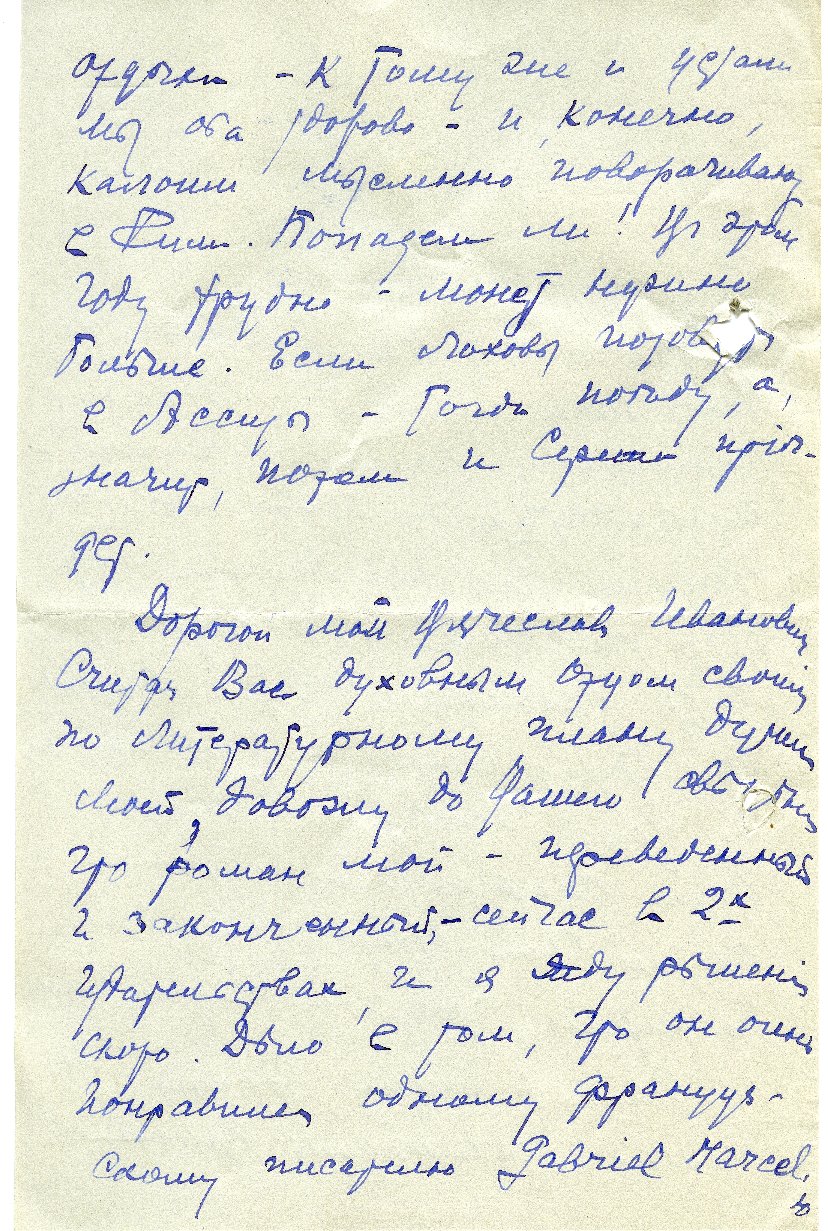 отдыха - к тому же и устали
мы оба здорово - и, конечно,
калоши мысленно поворачиваю
в Рим. Попадем ли! Въ этом
году трудно - может нужно
больше. Если позовут
в Ассизы - тогда поеду, а,
значит, потом и Сережа прiѣ-
дет.
Дорогой мой Вячеслав Иванович
Считая Вас духовным отцом своим
по литературному плану души
моей, довожу до Вашего свѣдѣнія
что роман мой - переведенный
и законченный, - сейчас в 2х
издательствах, и я жду рѣшенія
скоро. Дѣло в том, что он очень
понравился одному француз-
скому писателю Gabriel Marcel.